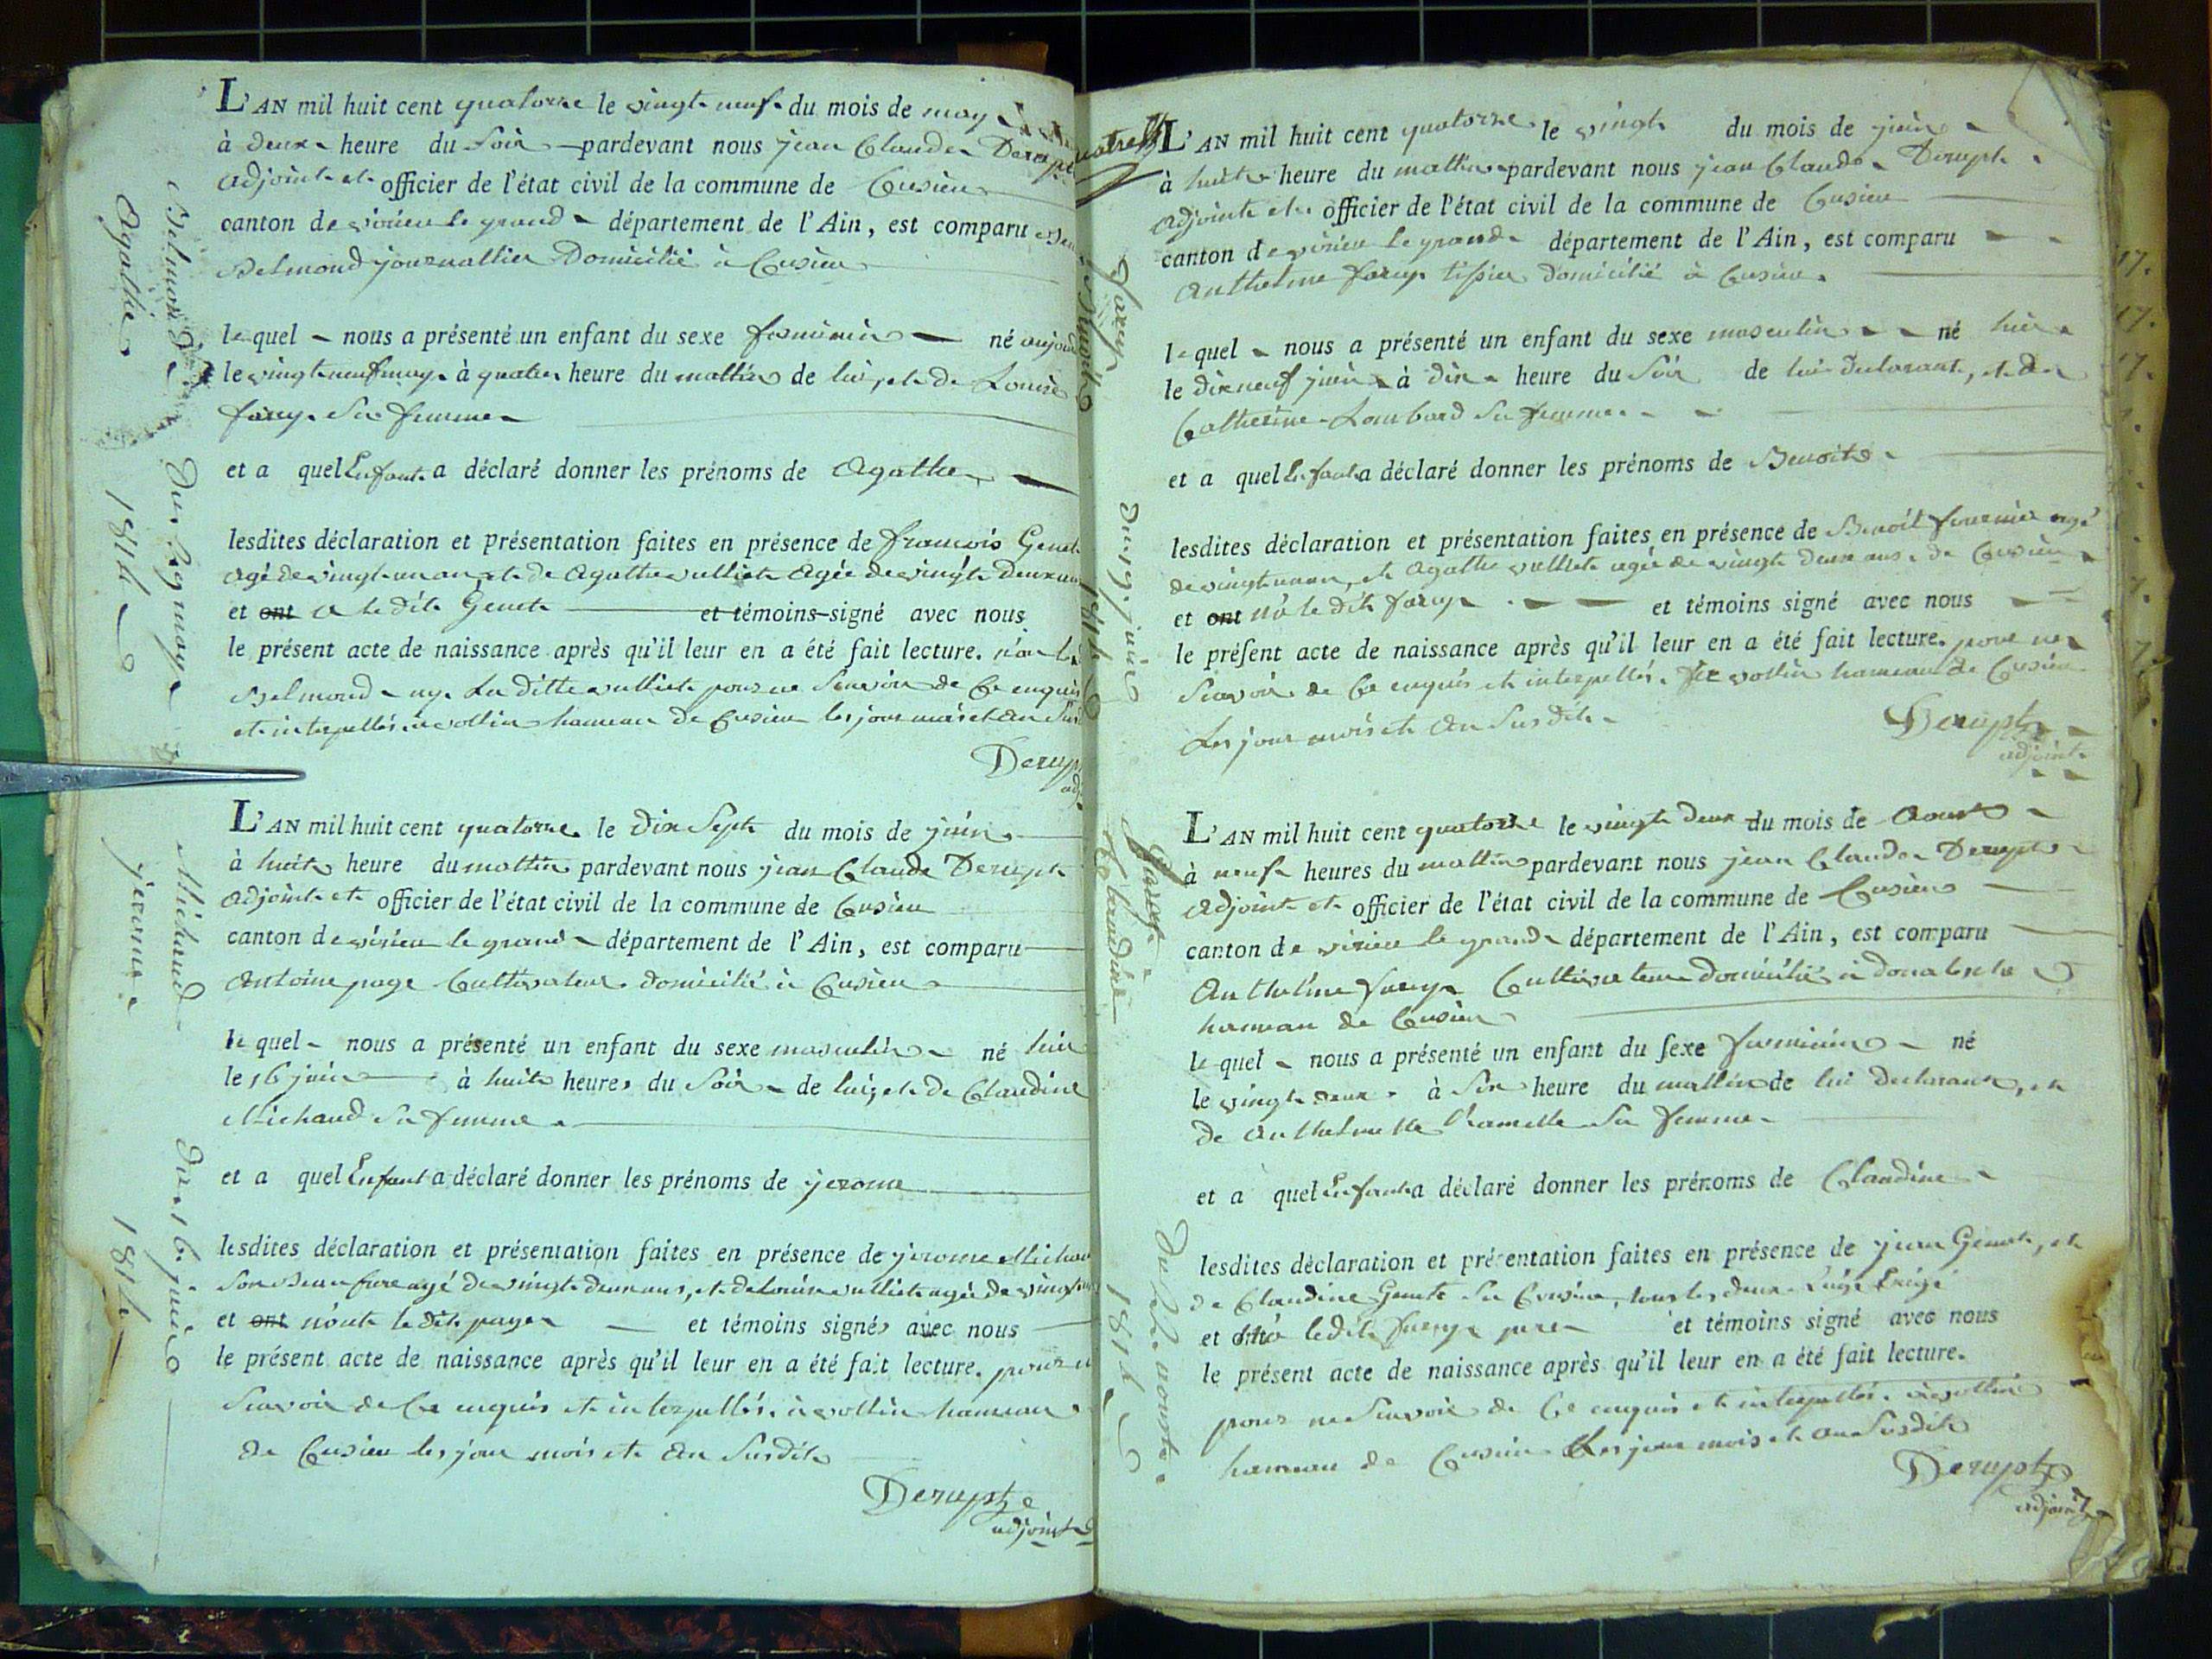 L'AN mil huit cent quatorze le vingt neuf du mois de may
à deux heure du Soir pardevant nous jean Claude Derupt
adjoint et officier de l'état civil de la commune de Cusieu
canton de virieu le grand département de l'Ain, est comparu
Belmond journallier Domicilié à Cusieu
lequel nous a présenté un enfant du sexe feminin né
le vingt neuf may à quatre heure du mattin de lui, et de Louise
farcy Sa femme
et a quel Enfant a déclaré donner les prénoms de Agathe
lesdites déclaration et présentation faites en présence de francois Genet
agé de vingt un an et de Agathe vulliet Agée de vingt deux
et ont a le dit Genet et témoins signé avec nous
le présent acte de naissance après qu'il leur en a été fait lecture.
Belmond ny La ditte vulliet pour ne Scavoir de Ce enquis
et interpellés. à vollin hameau de Cusieu les jour mois et an
Derupt
Belmond Agathe
Du 29 may 1814
L'AN mil huit cent quatorze le Dix Sept du mois de juin
à huit heure du mattin pardevant nous jean Claude Derupt
adjoint et officier de l'état civil de la commune de Cusieu
canton de virieu le grand département de l'Ain, est comparu
Antoine page Cultivateur domicilié à Cusieu
lequel nous a présenté un enfant du sexe masculin né hier
le 16 juin à huit heures du Soir de lui, et de Claudine
Michaud Sa femme
et a quel Enfant a déclaré donner les prénoms de jerome
lesdites déclaration et présentation faites en présence de jerome
Son Beau frere agé de vingt deux ans, et de Louise vulliet agée de
et ont n'ont le dit page et témoins signés avec nous
le présent acte de naissance après qu'il leur en a été fait lecture.
Scavoir de Ce enquis et interpellés. à vollin hameau
de Cusieu les jour mois et an Susdit
Derupt
adjoint
Michaud jerome
Du 16 juin 1814
L'AN mil huit cent quatorze le vingt du mois de juin
à huit heure du mattin pardevant nous jean Claude Derupt
Adjoint et officier de l'état civil de la commune de Cusieu
canton de virieu le grand département de l'Ain, est comparu
Anthelme farcy tissier domicilié à Cusieu
lequel nous a présenté un enfant du sexe masculin né hier
le dix neuf juin à dix heure du Soir de lui Declarant, et de
Catherine Lombard Sa femme
et a quel Enfant a déclaré donner les prénoms de Benoit
lesdites déclaration et présentation faites en présence de Benoit fournier agé
de vingt un an, et Agathe vulliet agée de vingt deux ans. de Cusieu
et ont n'a le dit farcy et témoins signé avec nous
le présent acte de naissance après qu'il leur en a été fait lecture. pour ne
Scavoir de Ce enquis et interpellés. vollin hameau de Cusieu
Les jour mois et an Susdit
Derupt
adjoint
farcy Benoit
Du 19 juin 1814
L'AN mil huit cent quatorze le vingt deux du mois de Aoust
à neuf heures du mattin pardevant nous jean Claude Derupt
Adjoint et officier de l'état civil de la commune de Cusieu
canton de virieu le grand département de l'Ain, est comparu
Anthelme farcy Cultivateur domicilié à
hameau de Cusieu
lequel nous a présenté un enfant du sexe feminin né
le vingt deux à Six heure du mattin de lui declarant, et
de Anthelmette Ramelle Sa femme
et a quel Enfant a déclaré donner les prénoms de Claudine
lesdites déclaration et présentation faites en présence de jean Genet, et
de Claudine Genet Sa Cousine, tous les deux
et n'a le dit farcy pere et témoins signé avec nous
le présent acte de naissance après qu'il leur en a été fait lecture.
pour ne Scavoir de Ce enquis et interpellés. à vollin
hameau de Cusieu Les jour mois et an Susdit
Derupt
adjoint
farcy Claudine
aoust 1814